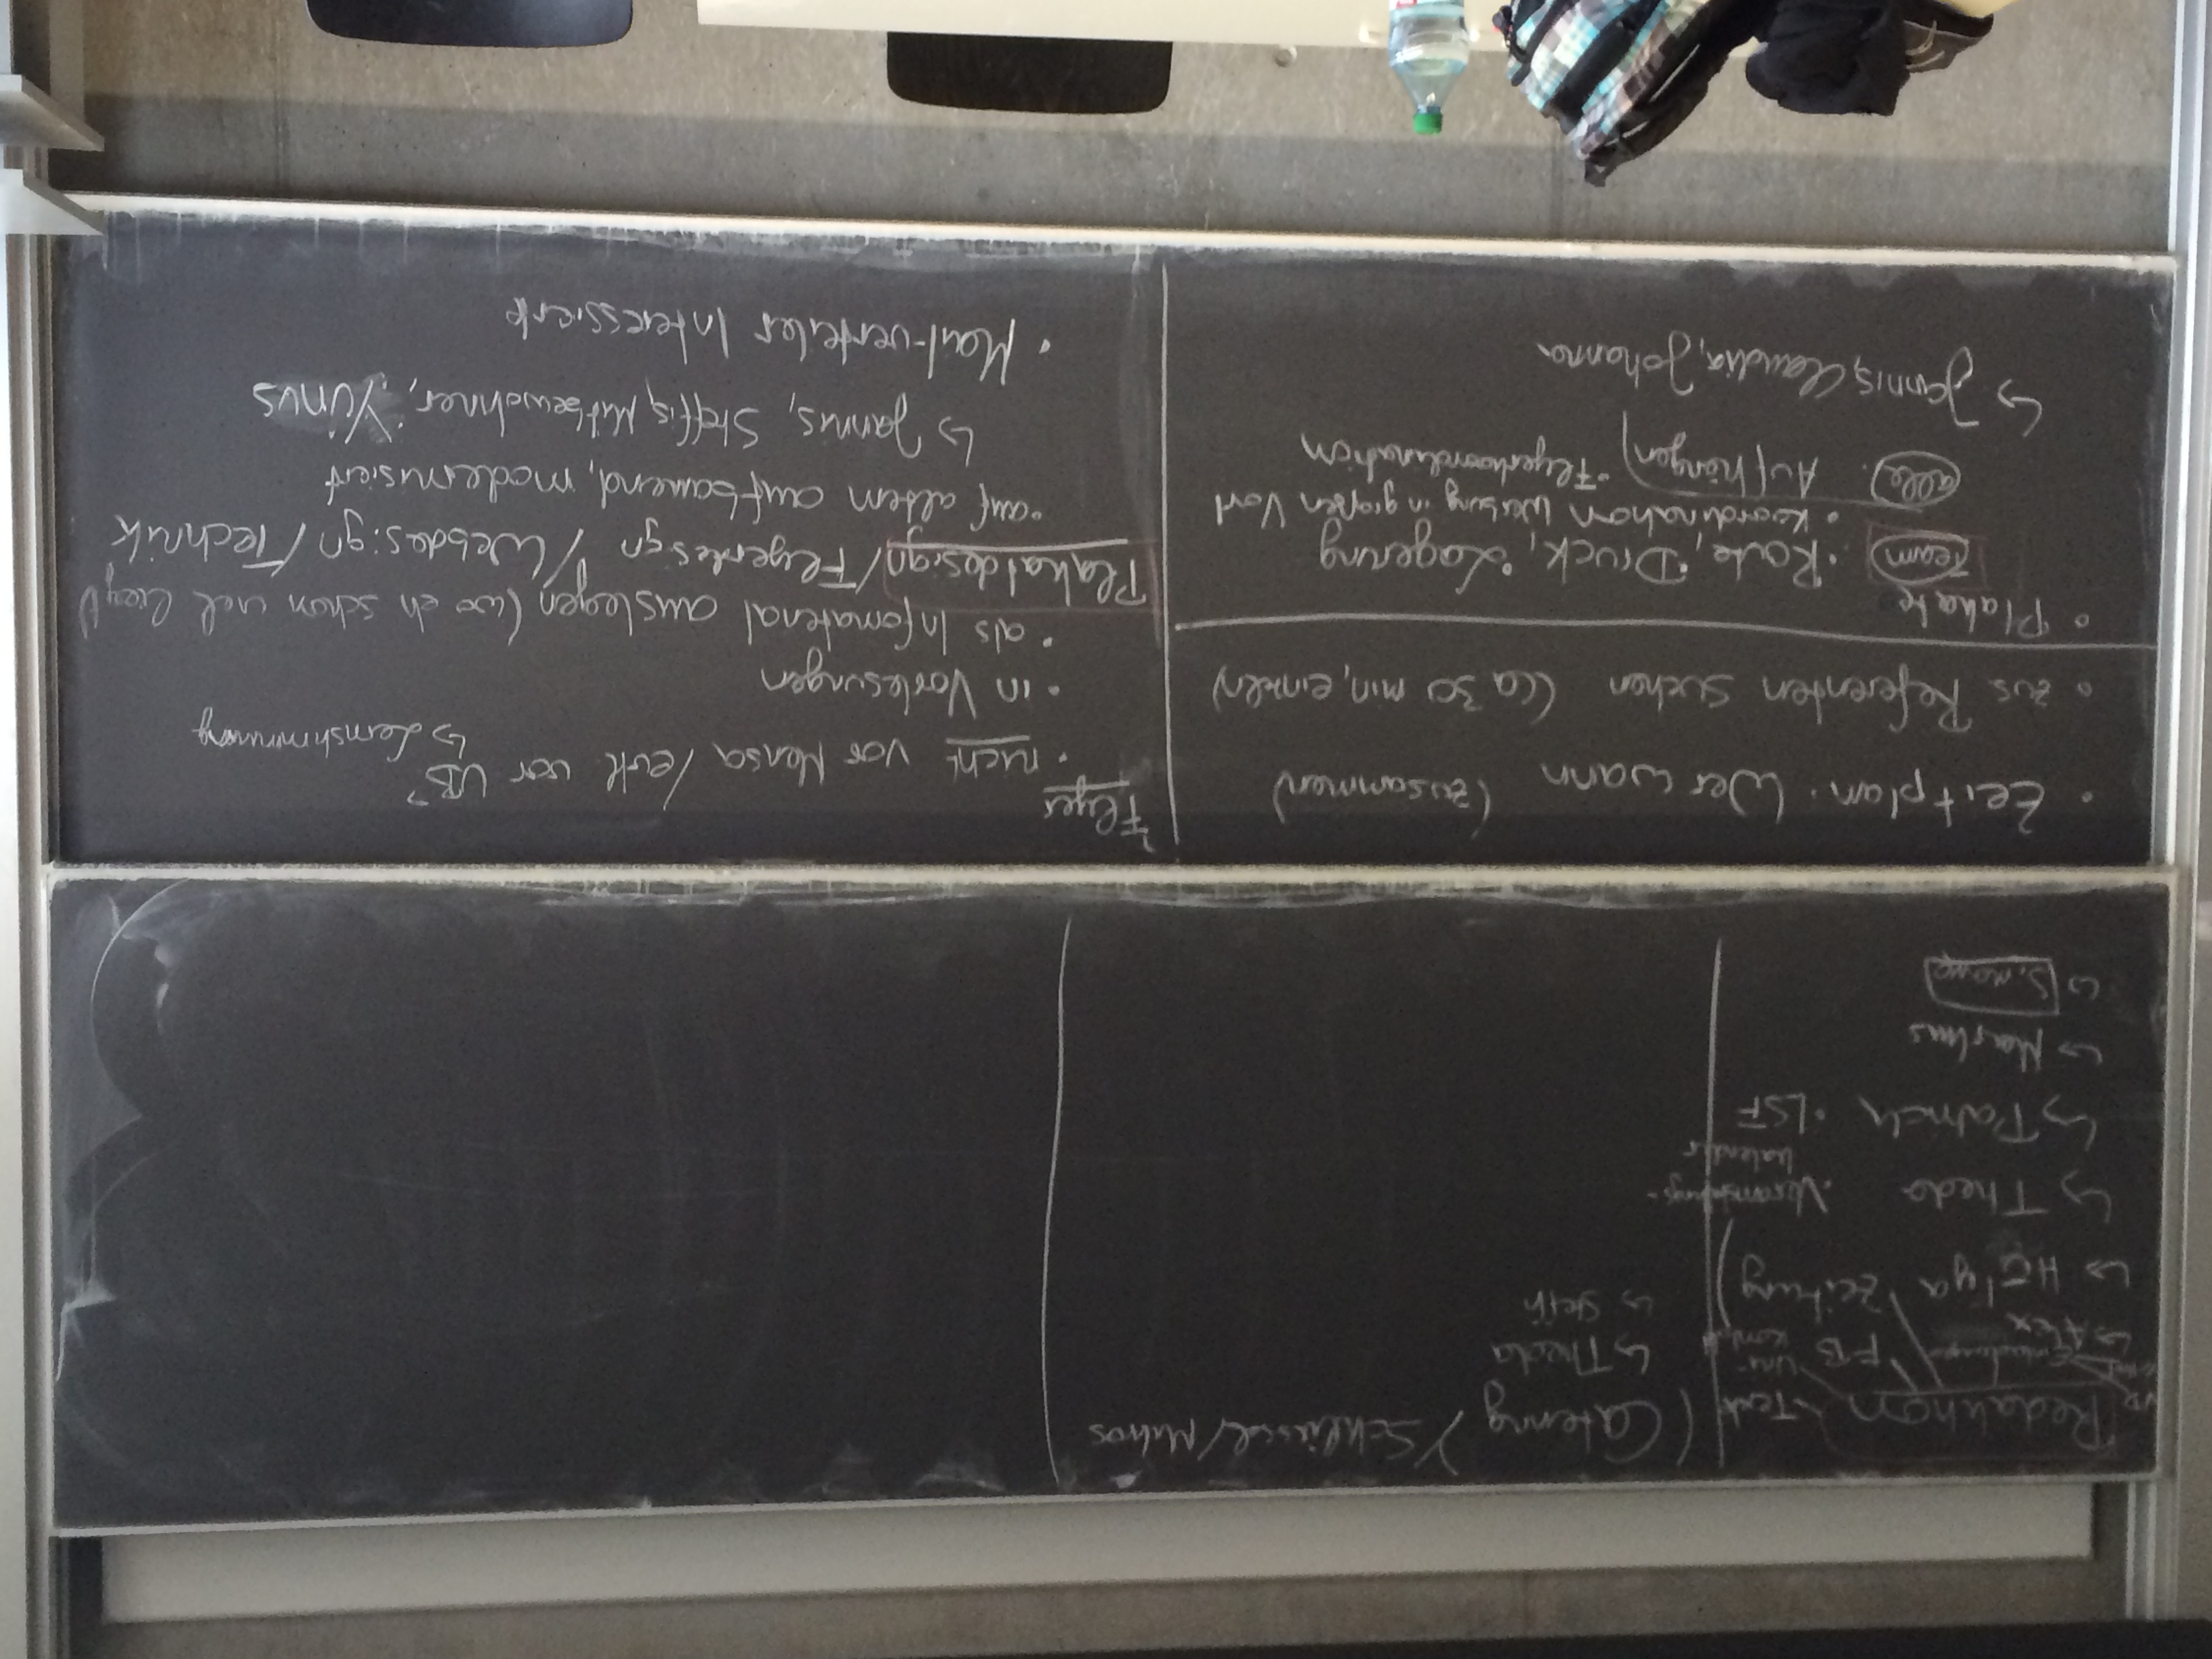 Redaktion Text
FB
↳ Alex
↳ Hülya
Zeitung
↳ Theda
• Veranstaltungs-
kalender
↳ Patrick • LSF
↳ Markus
↳ Simone
(Catering)
↳ Theda
↳ Steffi
Schlüssel/Mikros
• Zeitplan: Wer wann (zusammen)
• zus Referenten suchen (ca 30 min, einzeln)
• Plakate
Team • Route, • Druck, • Lagerung
• Koordination Werbung in großen Vorl
alle • Aufhängen • Flyerkoordination
↳ Jannis, Claudia, Johanna
Flyer
• nicht vor Mensa / evtl vor UB?
↳ Lernstimmung
• in Vorlesungen
• als Infomaterial auslegen (wo eh schon viel liegt)
Plakatdesign / Flyerdesign / Webdesign / Technik
• auf altem aufbauend, modernisiert
↳ Jannis, Steffis Mitbewohner, Yunus
• Mail-verteiler Interessierte